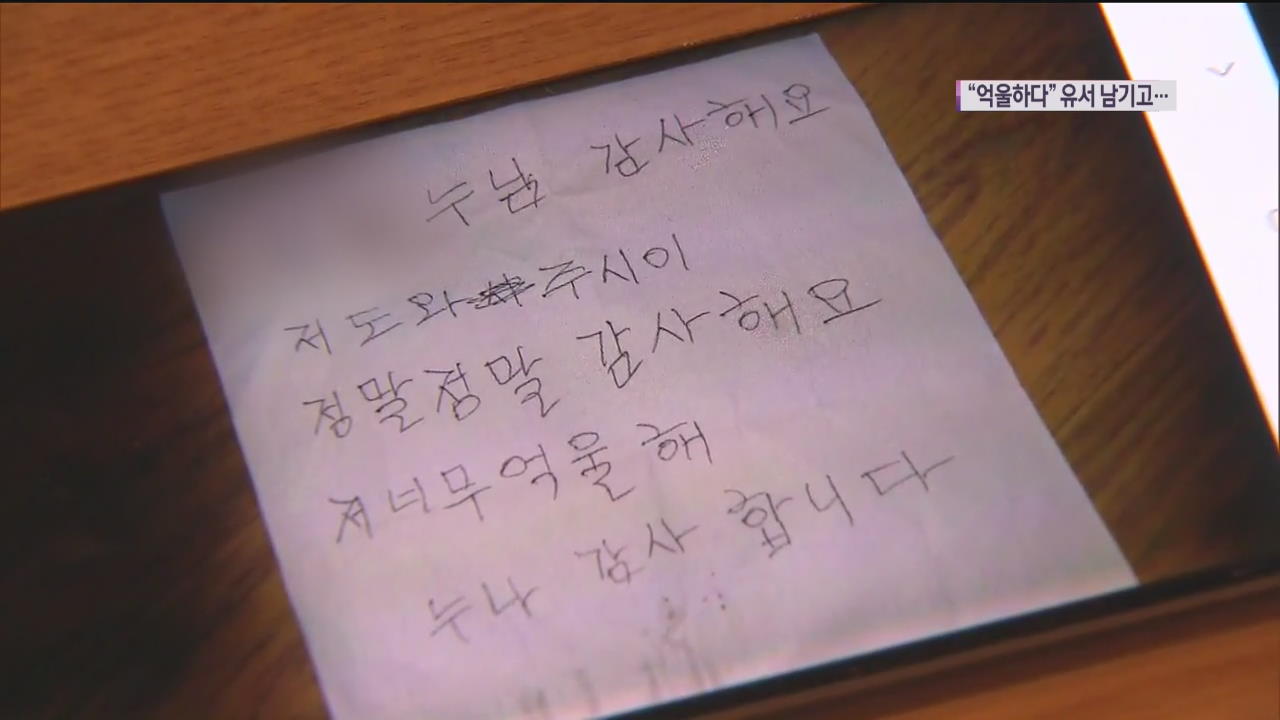 “억울하다” 유서 남기고…
누님 감사해요
저 도와 주시이
정말정말 감사해요
저 너무 억울 해
누나 감사 합니다